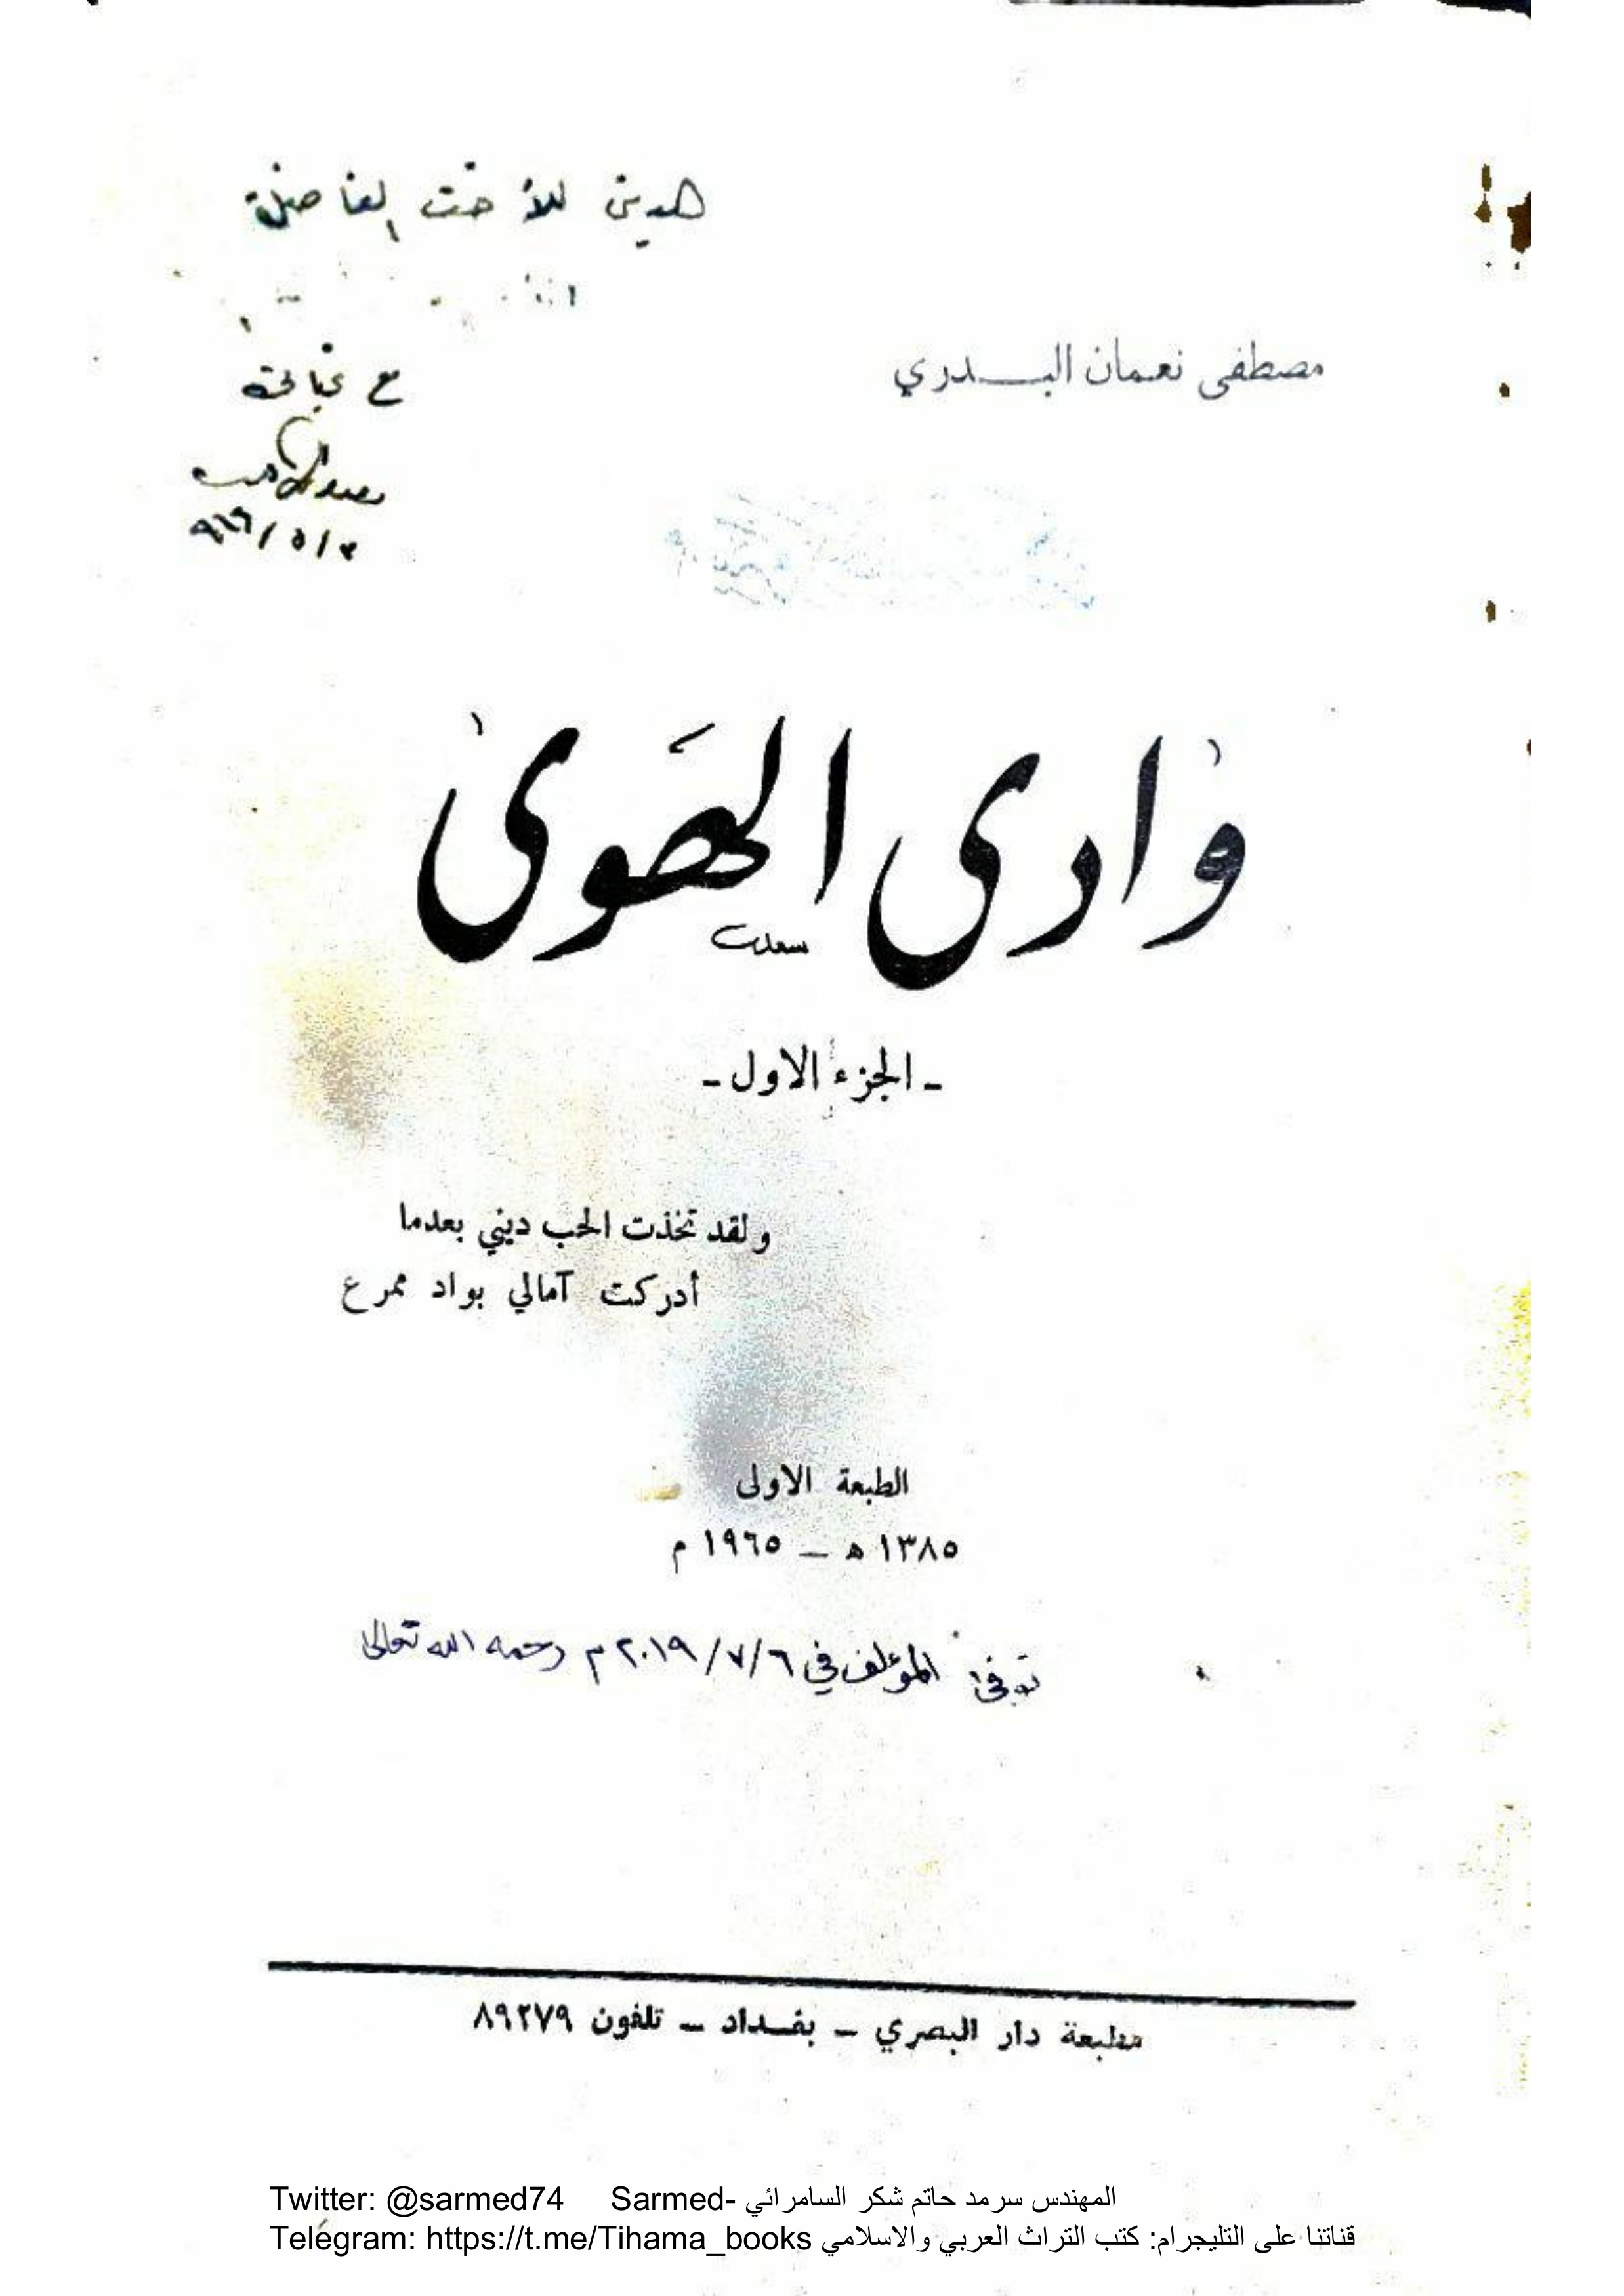 هديتي للأخت الفاضلة
مع
مصطفى نعمان البـــدري
وادى الهوى
- الجزء الاول -
ولقد تخذت الحب ديني بعدما
أدركت آمالي بواد ممرع
الطبعة الاولى
١٣٨٥ هـ - ١٩٦٥ م
توفي المؤلف في ٦/٧/٢٠١٩ م رحمه الله تعالى
مطبعة دار البصري - بغـداد - تلفون ٨٩٢٧٩
Twitter: @sarmed74 Sarmed- المهندس سرمد حاتم شكر السامرائي
Telegram: https://t.me/Tihama_books قناتنا على التليجرام: كتب التراث العربي والاسلامي